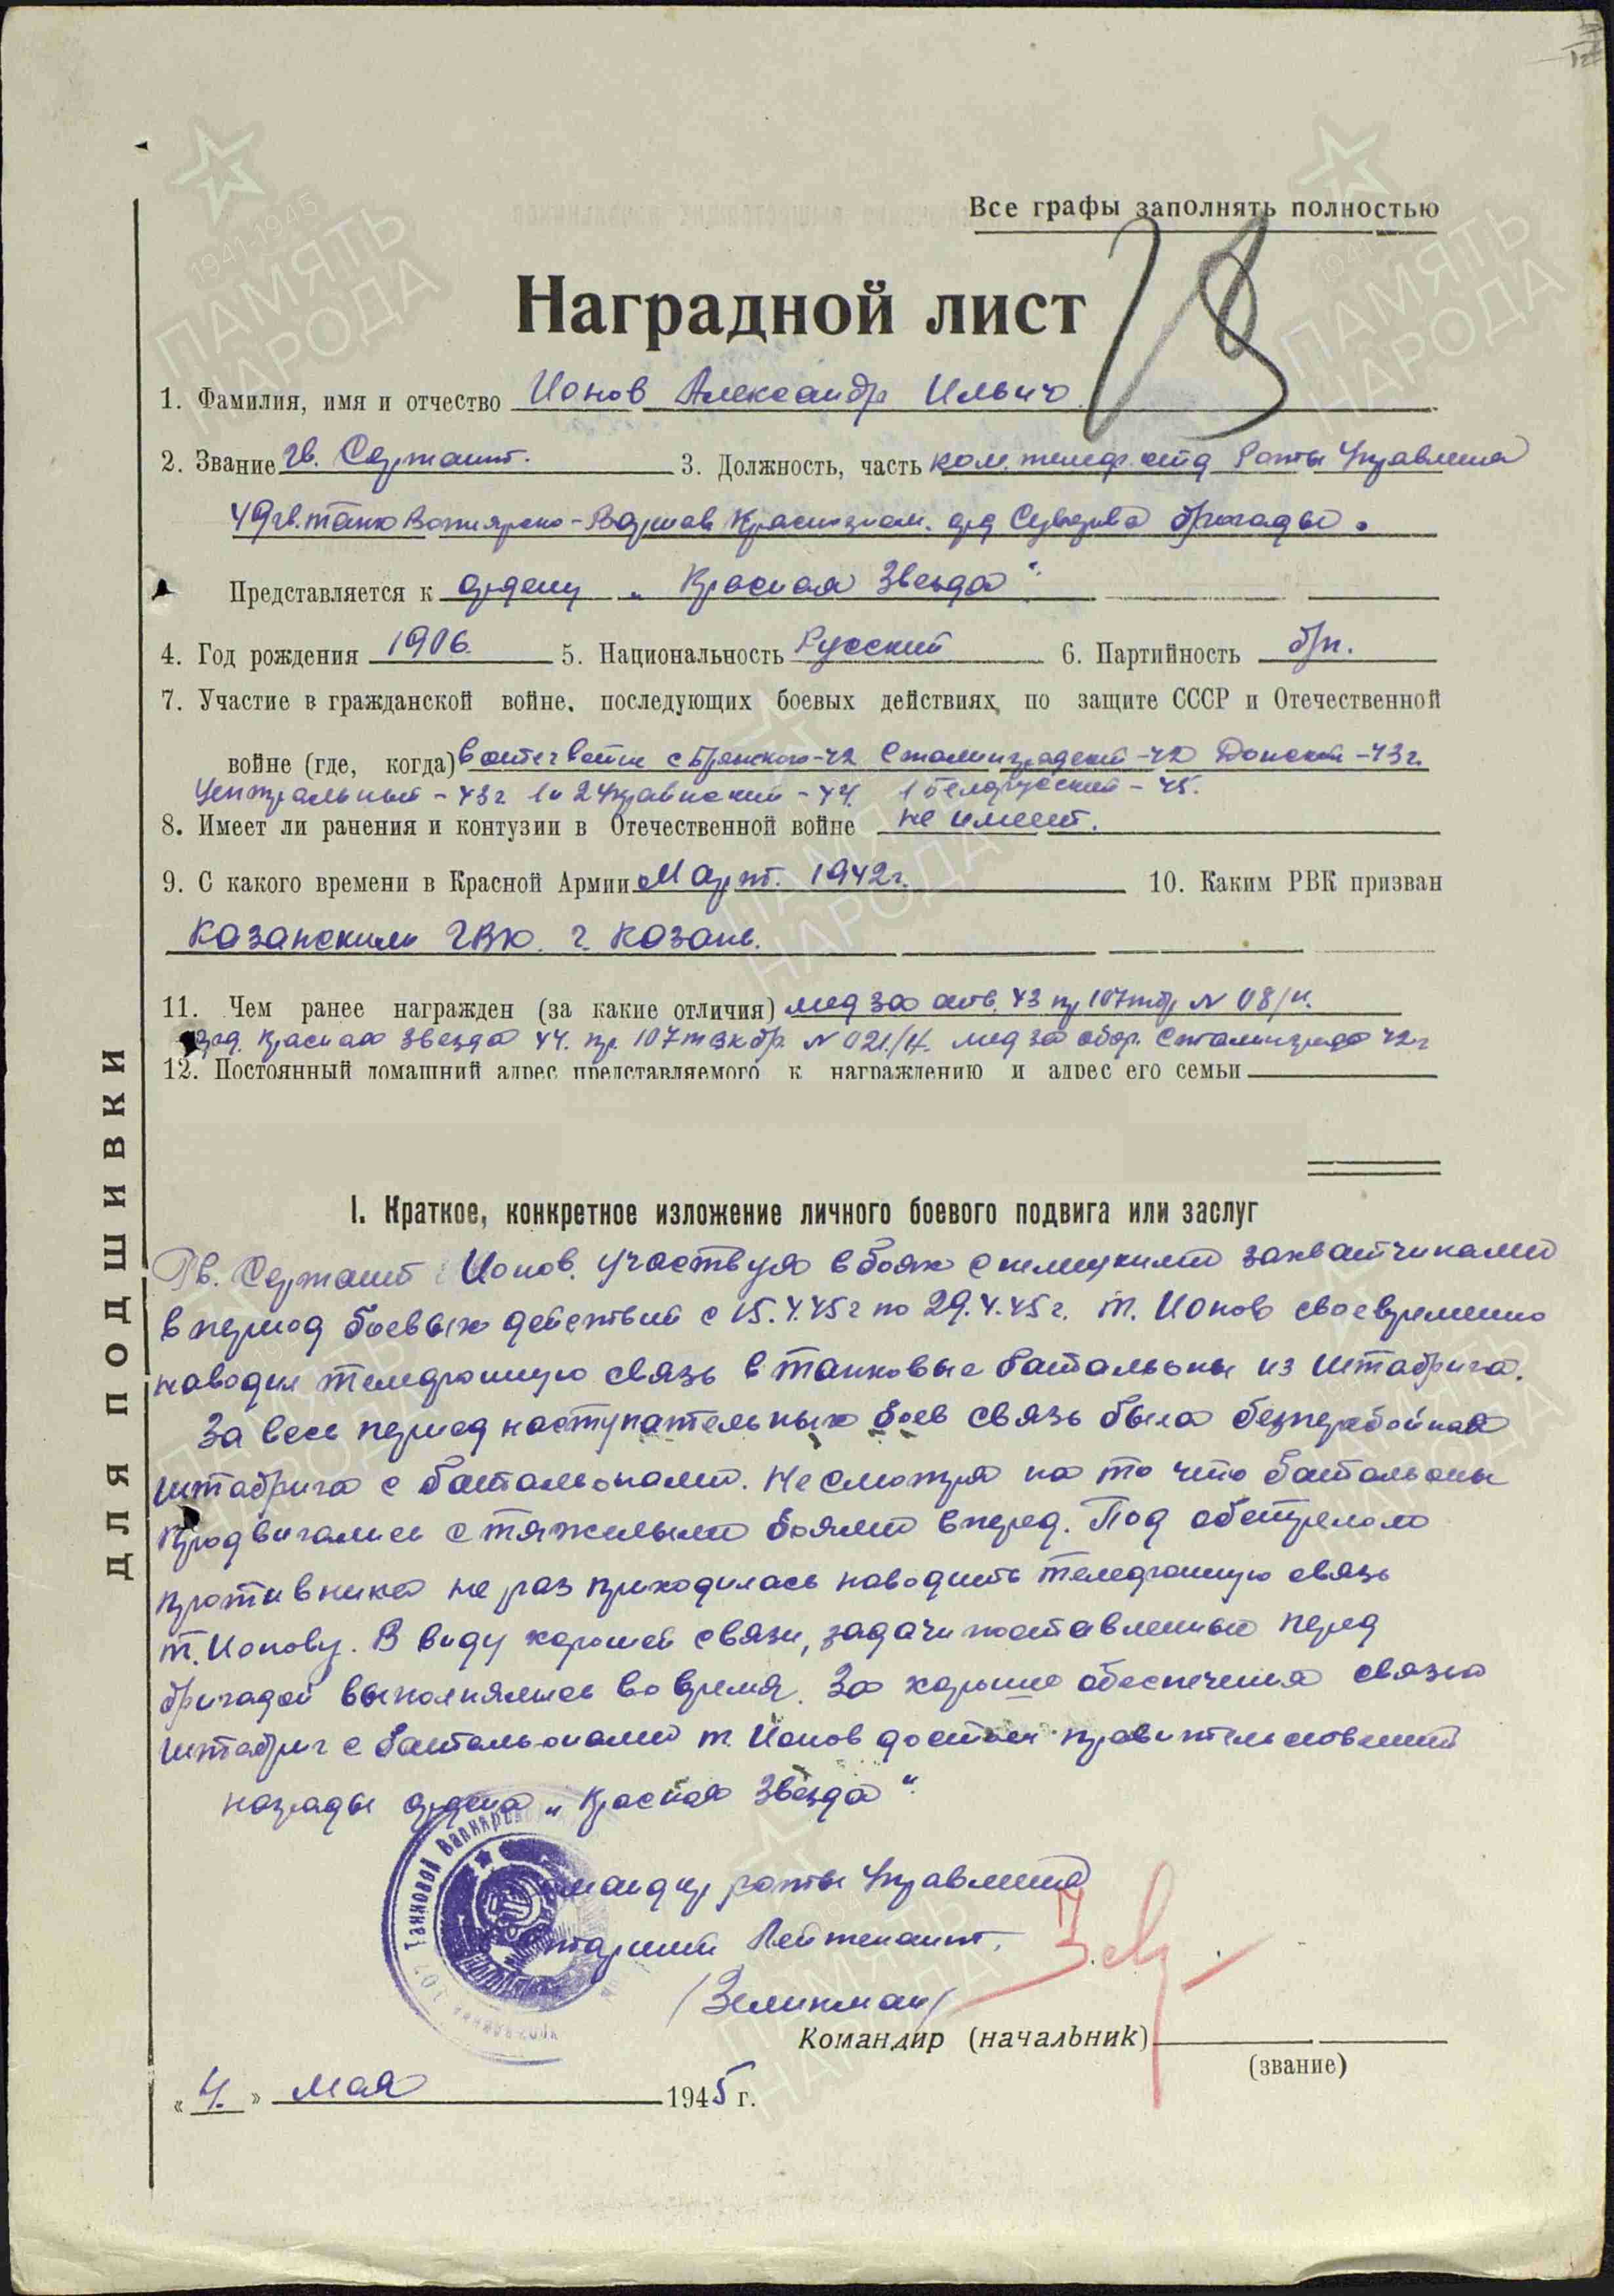 Все графы заполнять полностью
Наградной лист
1. Фамилия, имя и отчество Ионов Александр Ильич
2. Звание гв. Сержант. 3. Должность, часть ком. телеф. отд Роты Управления
49 гв. танк Вапнярско-Варшав Краснознам. орд Суворова бригады.
Представляется к ордену „Красная Звезда"
4. Год рождения 1906. 5. Национальность Русский 6. Партийность б/п.
7. Участие в гражданской войне, последующих боевых действиях, по защите СССР и Отечественной
войне (где, когда) в отеч войне с Брянского-42 Сталинградский-42 Донской-43г.
Центральный-43г 1и2 Украинский-44. 1 белорусский-45.
8. Имеет ли ранения и контузии в Отечественной войне не имеет.
9. С какого времени в Красной Армии Март. 1942г. 10. Каким РВК призван
Казанским ГВК. г. Казань.
11. Чем ранее награжден (за какие отличия) мед за отв. 43 пр 107тбр N 08/н.
орд. Красная Звезда 44. пр. 107танкбр. N 021/н. мед за обор. Сталинграда 42г
12. Постоянный домашний адрес представляемого к награждению и адрес его семьи
I. Краткое, конкретное изложение личного боевого подвига или заслуг
Гв. Сержант Ионов. участвуя в боях с немецкими захватчиками
в период боевых действий с 15.4.45г по 29.4.45г. т. Ионов своевременно
наводил телефонную связь в танковые батальоны из штабрига.
За весь период наступательных боев связь была безперебойная
штабрига с батальонами. Не смотря на то что батальоны
продвигались с тяжелыми боями вперед. Под обстрелом
противника не раз приходилась наводить телефонную связь
т. Ионову. В виду хорошей связи, задачи поставленные перед
бригадой выполнялись во время. За хорошие обеспечения связью
штабриг с батальонами т. Ионов достоен правительственной
награды ордена „Красная Звезда"
Командир роты Управления
Старший Лейтенант.
/Зеликман/
Командир (начальник)
(звание)
«4.» мая 1945 г.
ДЛЯ ПОДШИВКИ
107 Танковой Вапнярско
1941-1945
ПАМЯТЬ
НАРОДА